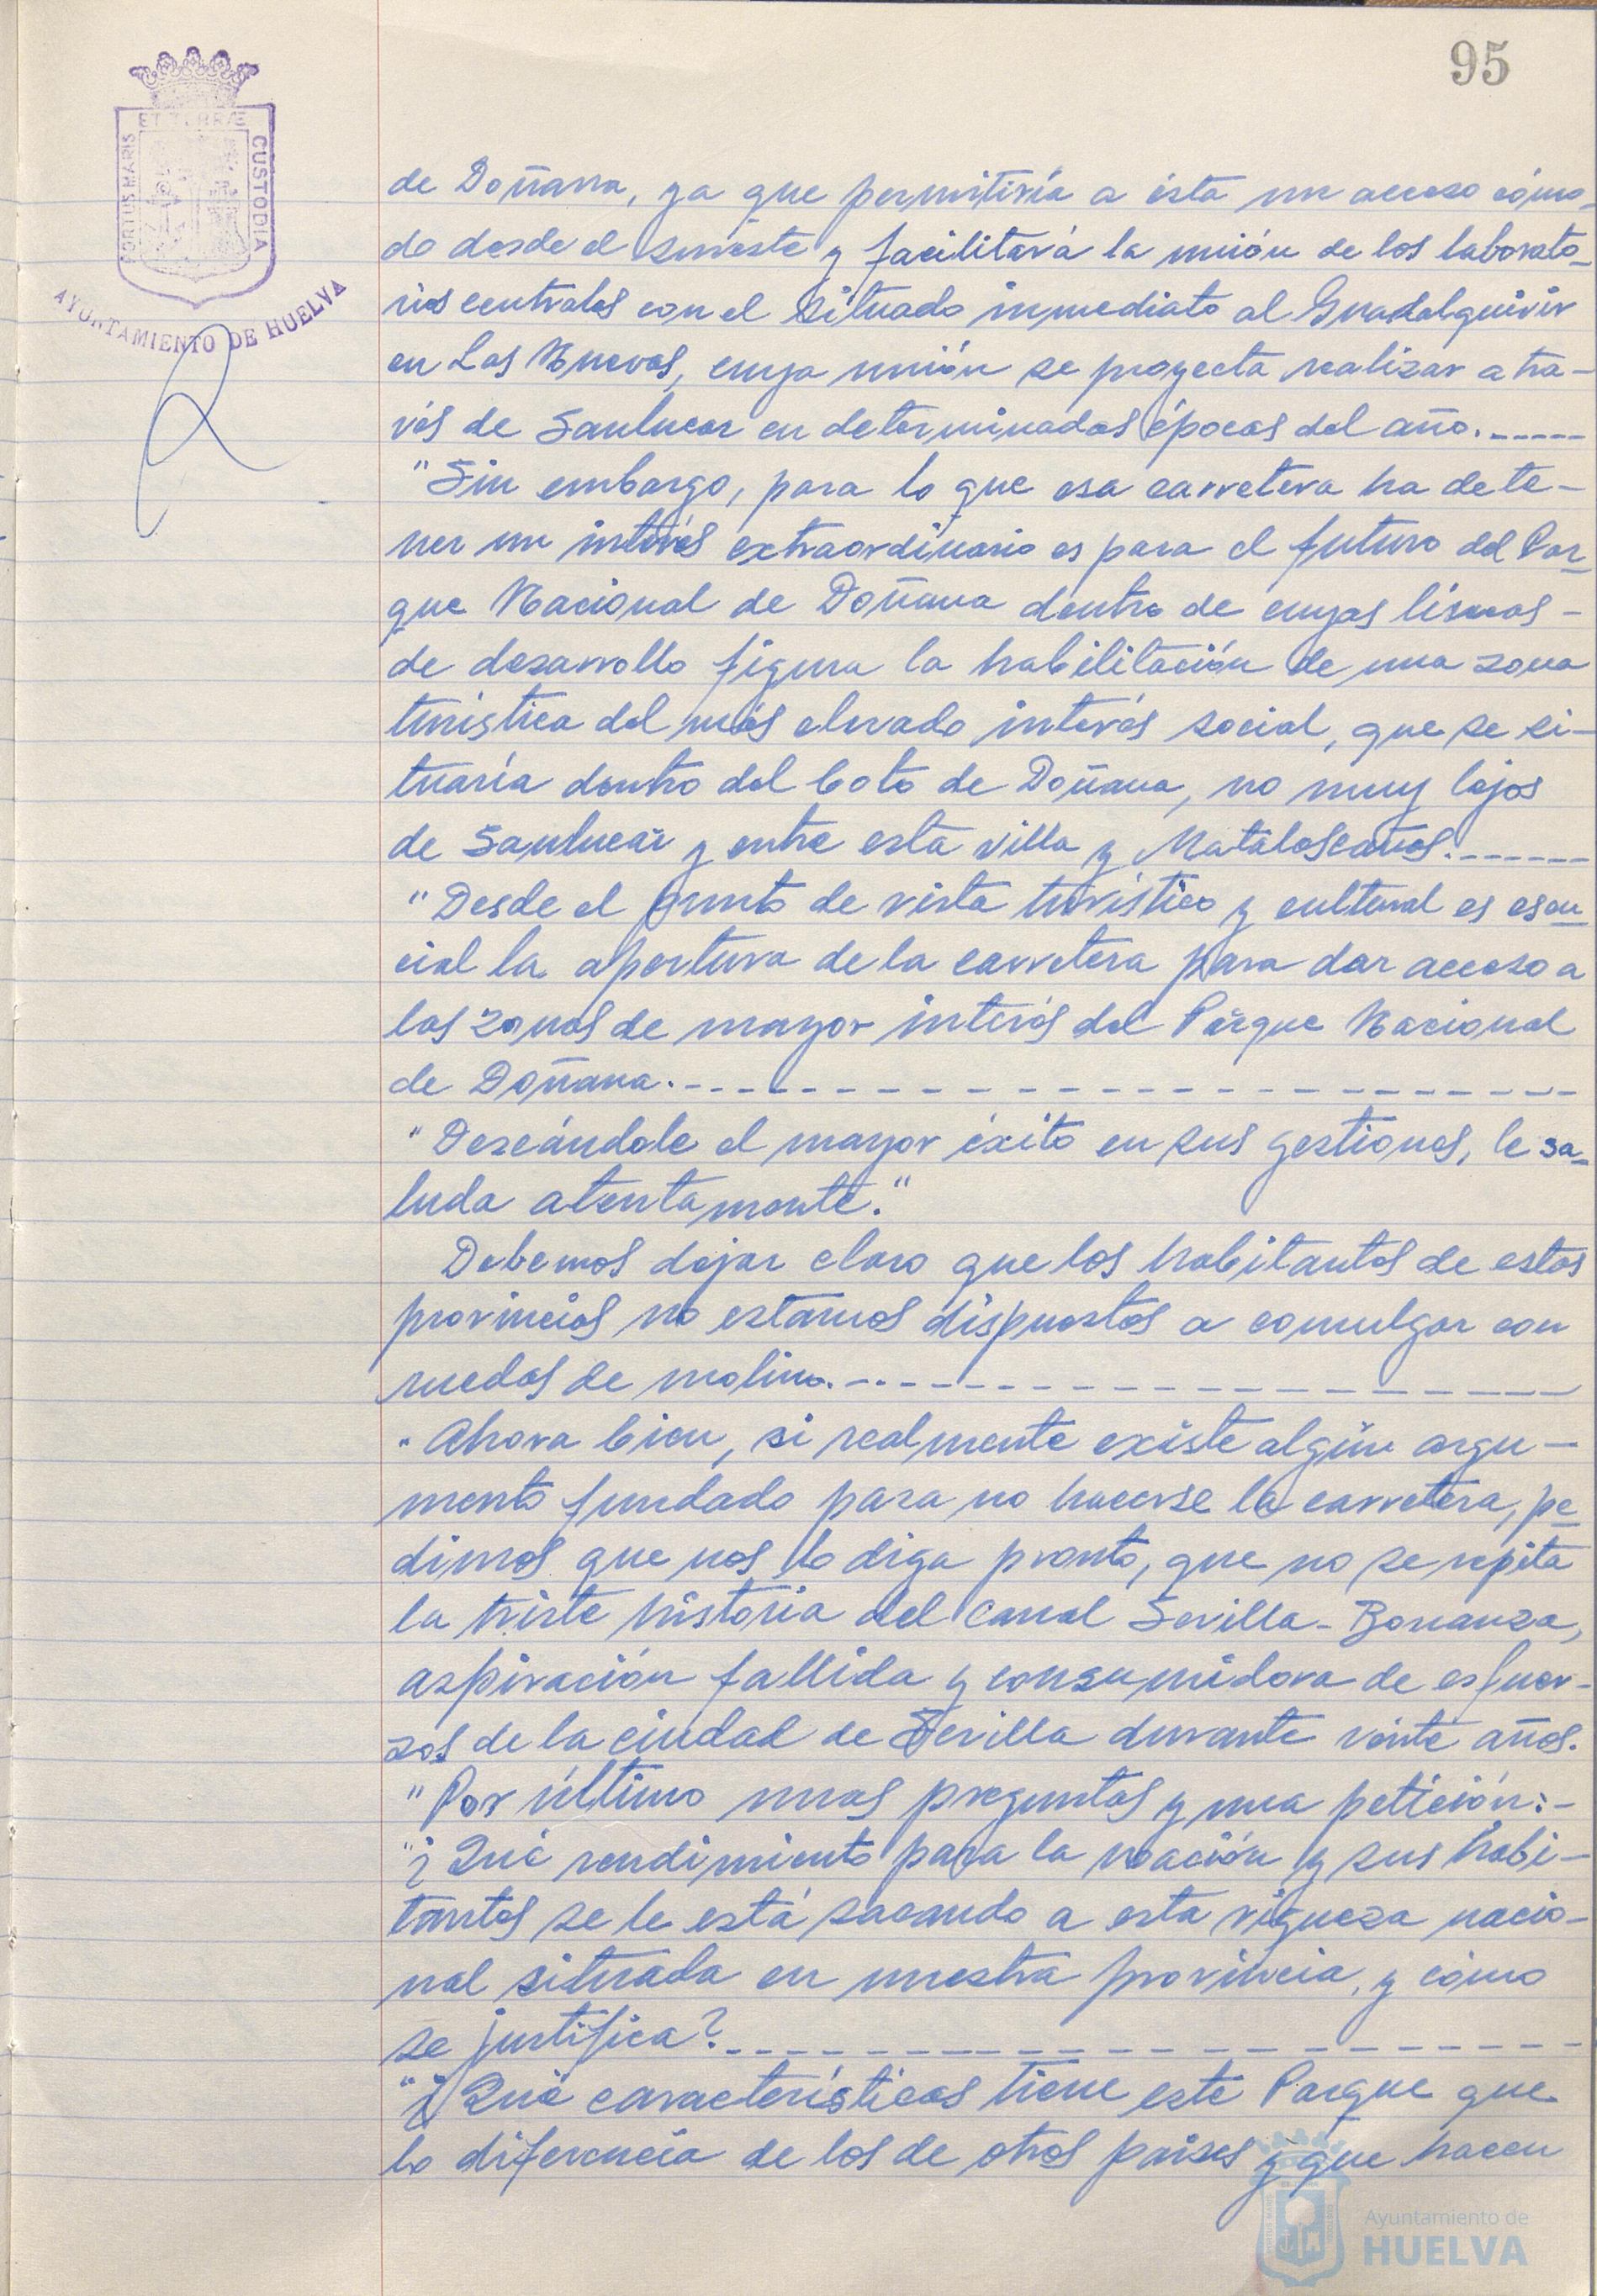 95
ET TERRÆ
PORTUS MARIS
CUSTODIA
AYUNTAMIENTO DE HUELVA
de Doñana, ya que permitiría a ésta un acceso cómo-
do desde el sureste y facilitará la unión de los laborato-
rios centrales con el situado inmediato al Guadalquivir
en Las Nuevas, cuya unión se proyecta realizar a tra-
vés de Sanlucar en determinadas épocas del año.------
"Sin embargo, para lo que esa carretera ha de te-
ner un interés extraordinario es para el futuro del Par-
que Nacional de Doñana dentro de cuyas líneas -
de desarrollo figura la habilitación de una zona
turística del más elevado interés social, que se si-
tuaría dentro del Coto de Doñana, no muy lejos
de Sanlucar y entre esta villa y Matalascañas.------
"Desde el punto de vista turístico y cultural es esen-
cial la apertura de la carretera para dar acceso a
las zonas de mayor interés del Parque Nacional
de Doñana.--------------------
"Deseándole el mayor éxito en sus gestiones, le sa-
luda atentamente."
Debemos dejar claro que los habitantes de estas
provincias no estamos dispuestos a comulgar con
ruedas de molino.-----------------
"Ahora bien, si realmente existe algún argu-
mento fundado para no hacerse la carretera, pe-
dimos que nos lo diga pronto, que no se repita
la triste historia del Canal Sevilla-Bonanza,
aspiración fallida y consumidora de esfuer-
zos de la ciudad de Sevilla durante veinte años.
"Por último unas preguntas y una petición:-
"¿Qué rendimiento para la nación y sus habi-
tantes se le está sacando a esta riqueza nacio-
nal situada en nuestra provincia, y cómo
se justifica?--------------------
"¿Qué características tiene este Parque que
lo diferencia de los de otros paises y que hacen
Ayuntamiento de
HUELVA